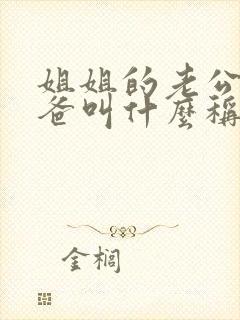 姐姐的老公
爸叫什麼稱
金榈